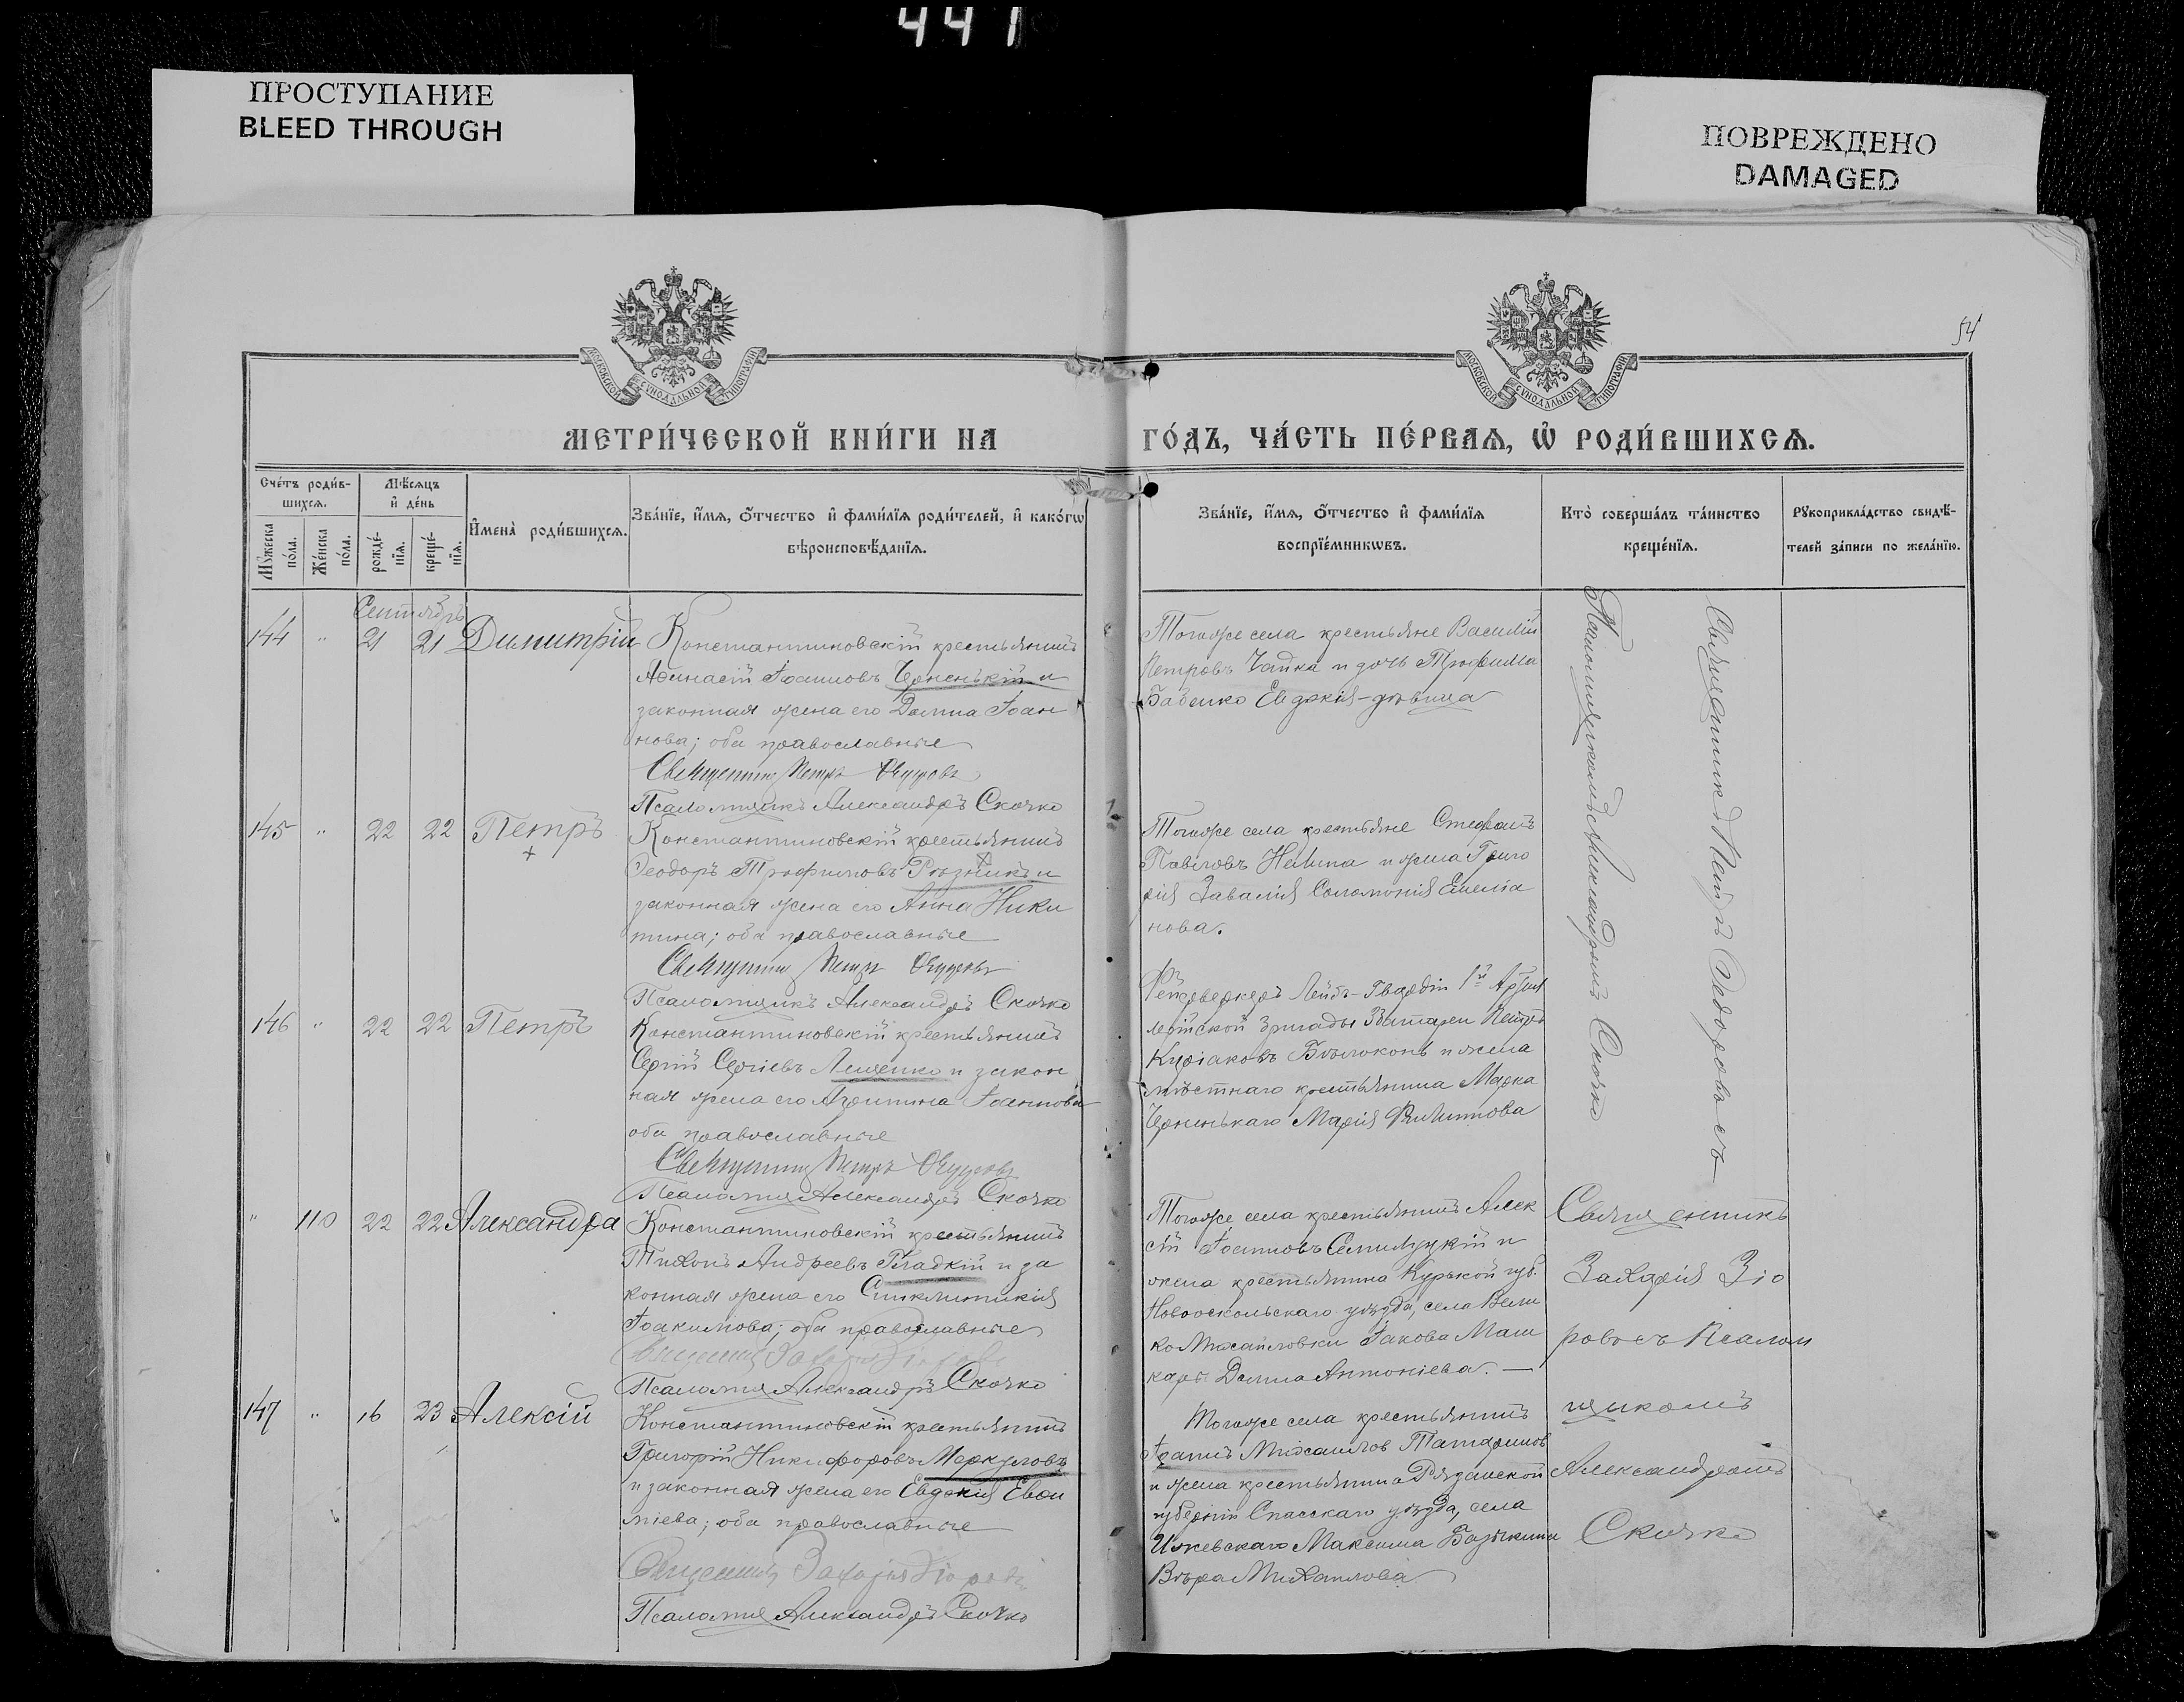 441
ПРОСТУПАНИЕ
BLEED THROUGH
ПОВРЕЖДЕНО
DAMAGED
54
МОСКОВСКОЙ СѴНОДАЛЬНОЙ ТИПОГРАФІИ
МОСКОВСКОЙ СѴНОДАЛЬНОЙ ТИПОГРАФІИ
МЕТРИ́ЧЕСКОЙ КНИ́ГИ НА
ГО́ДЪ, ЧА́СТЬ ПЕ́РВАѦ, Ѡ РОДИ́ВШИХСѦ.
Сче́тъ роди́в-
шихсѧ.
Мѣ́сѧцъ
и де́нь
Мꙋ́жеска
по́ла.
Же́нска
по́ла.
рожде́-
нїѧ.
креще́-
нїѧ.
И҆мена̀ роди́вшихсѧ.
Зва́нїе, и҆́мѧ, ѻ҆́тчество и҆ фами́лїѧ роди́телей, и҆ како́гѡ
вѣроисповѣ́данїѧ.
Зва́нїе, и҆́мѧ, ѻ҆́тчество и҆ фами́лїѧ
воспрїе́мникѡвъ.
Кто̀ соверша́лъ та́инство
креще́нїѧ.
Рꙋкоприкла́дство свидѣ́-
телей за́писи по жела́нїю.
Сентябрь
144 " 21 21 Димитрій
Константиновскій крестьянинъ
Аѳанасій Іоанновъ Черненькій и
законная жена его Домна Іоан
нова; оба православные
Священникъ Петръ Ѳедоровъ
Псаломщикъ Александръ Скочко
Тогоже села крестьяне Василій
Петровъ Чайка и дочь Трофима
Бабенко Евдокія-дѣвица
145 " 22 22 Петръ
Константиновскій крестьянинъ
Ѳеодоръ Трофимовъ Рѣзникъ и
законная жена его Анна Ники
тина; оба православные
Священникъ Петръ Ѳедоровъ
Псаломщикъ Александръ Скочко
Тогоже села крестьяне Стефанъ
Павловъ и жена Григо
рія Завалія Соломонія Емелія
нова.
146 " 22 22 Петръ
Константиновскій крестьянинъ
Сергій Сергіевъ Лещенко и закон
ная жена его Агриппина Іоаннова
оба православные
Священникъ Петръ Ѳедоровъ
Псаломщ Александръ Скочко
Фейерверкеръ Лейбъ-Гвардіи 1й Артил
лерійской бригады батареи Петръ
Киріаковъ Бѣлоконь и жена
мѣстнаго крестьянина Марка
Черненькаго Марія Филиппова
Священникъ Петръ Ѳедоровъ съ
Псаломщикомъ Александромъ Скочко
" 110 22 22 Александра
Константиновскій крестьянинъ
Тихонъ Андреевъ Гладкій и за
конная жена его Синклитикія
Іоакимова; оба православные
Священникъ Захарія Зіоровъ
Псаломщ Александръ Скочко
Тогоже села крестьянинъ Алек
сій Іоанновъ и
жена крестьянина Курской губ.
Новооскольскаго уѣзда, села Вели
ко Михайловки Іакова Маш
кара Домна Антоніева.—
Священникъ
Захарія Зіо
ровъ съ Псалом
щикомъ
Александромъ
Скочко
147 " 16 23 Алексій
Константиновскій крестьянинъ
Григорій Никифоровъ Меркуловъ
и законная жена его Евдокія Евѳи
міева; оба православные
Священникъ Захарія Зіоровъ
Псаломщ Александръ Скочко
Тогоже села крестьянинъ
Іоаннъ Михаиловъ Татариновъ
и жена крестьянина Рязанской
губерніи Спасскаго уѣзда, села
Ижевскаго Максима Базыкина
Вѣра Михаилова